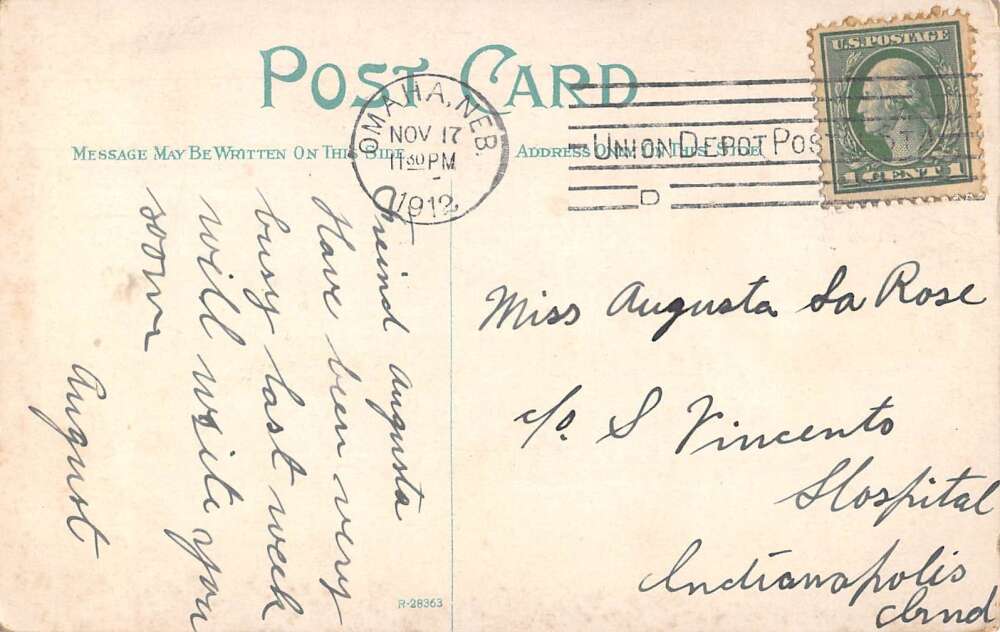 POST CARD
MESSAGE MAY BE WRITTEN ON THIS SIDE
ADDRESS ONLY ON THIS SIDE
OMAHA, NEB.
NOV 17
11 30 PM
1912
UNION DEPOT POST STA
D
U.S. POSTAGE
1 CENT 1
Freind Augusta
Have been very
busy last week
will write you
soon
August
Miss Augusta La Rose
c/o. S Vincents
Hospital
Indianapolis
Ind
R-28363